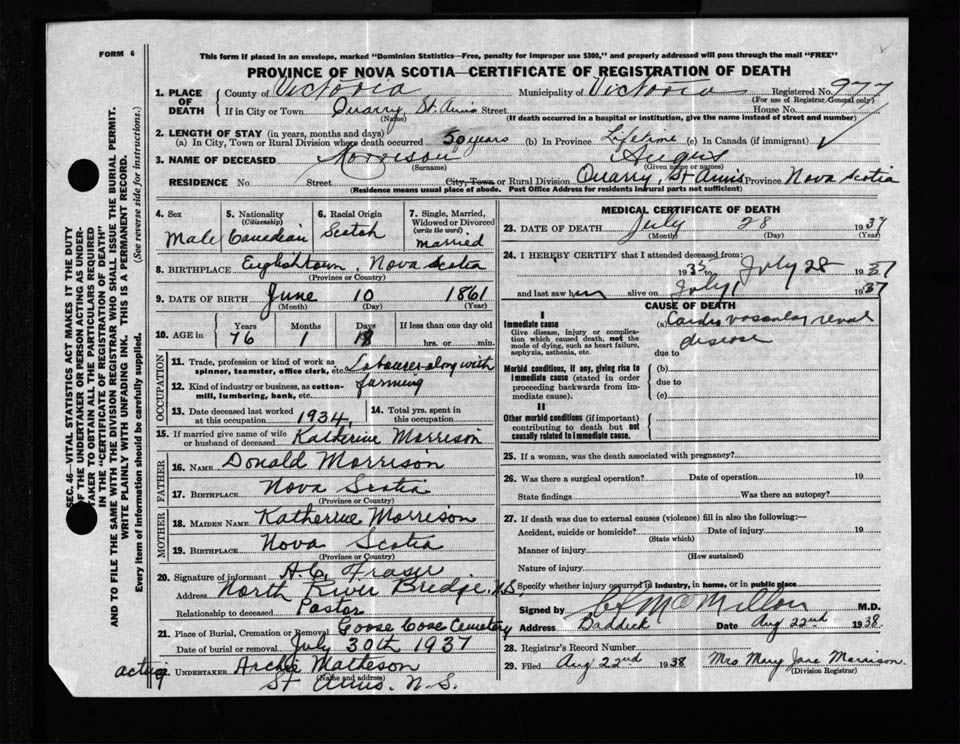 FORM 6
This form if placed in an envelope, marked "Dominion Statistics—Free, penalty for improper use $300," and properly addressed will pass through the mail "FREE"
PROVINCE OF NOVA SCOTIA—CERTIFICATE OF REGISTRATION OF DEATH
1. PLACE OF DEATH County of Victoria Municipality of Victoria Registered No. 977
(For use of Registrar General only)
If in City or Town Quarry, St Anns Street House No.
(Name) (If death occurred in a hospital or institution, give the name instead of street and number)
2. LENGTH OF STAY (in years, months and days)
(a) In City, Town or Rural Division where death occurred 50 years (b) In Province Lifetime (c) In Canada (if immigrant)
3. NAME OF DECEASED Morrison Angus
(Surname) (Given name or names)
RESIDENCE No. Street City, Town or Rural Division Quarry, St Anns Province Nova Scotia
(Residence means usual place of abode. Post Office Address for residents in rural parts not sufficient)
4. Sex Male
5. Nationality (Citizenship) Canadian
6. Racial Origin Scotch
7. Single, Married, Widowed or Divorced (write the word) married
8. BIRTHPLACE Englishtown, Nova Scotia
(Province or Country)
9. DATE OF BIRTH June 10 1861
(Month) (Day) (Year)
10. AGE in Years 76 Months 1 Days 18 If less than one day old hrs. or min.
OCCUPATION
11. Trade, profession or kind of work as spinner, teamster, office clerk, etc. Labourer along with
12. Kind of industry or business, as cotton-mill, lumbering, bank, etc. farming
13. Date deceased last worked at this occupation 1934
14. Total yrs. spent in this occupation
15. If married give name of wife or husband of deceased Katherine Morrison
FATHER
16. NAME Donald Morrison
17. BIRTHPLACE Nova Scotia
(Province or Country)
MOTHER
18. MAIDEN NAME Katherine Morrison
19. BIRTHPLACE Nova Scotia
(Province or Country)
20. Signature of informant A. C. Fraser
Address North River Bridge, N.S.
Relationship to deceased Pastor
21. Place of Burial, Cremation or Removal Goose Cove Cemetery
Date of burial or removal July 30th 1937
acting
22. UNDERTAKER Archie Matheson
(Name and address)
St Anns. N.S.
MEDICAL CERTIFICATE OF DEATH
23. DATE OF DEATH July 28 1937
(Month) (Day) (Year)
24. I HEREBY CERTIFY that I attended deceased from:
193 to July 28 1937
and last saw him alive on July 1 1937
CAUSE OF DEATH
I
Immediate cause
Give disease, injury or complication which caused death, not the mode of dying, such as heart failure, asphyxia, asthenia, etc.
(a) Cardio vascular renal disease
due to
Morbid conditions, if any, giving rise to immediate cause (stated in order proceeding backwards from immediate cause).
(b)
due to
(c)
II
Other morbid conditions (if important) contributing to death but not causally related to immediate cause.
25. If a woman, was the death associated with pregnancy?
26. Was there a surgical operation? Date of operation 19
State findings Was there an autopsy?
27. If death was due to external causes (violence) fill in also the following:—
Accident, suicide or homicide? Date of injury 19
(State which)
Manner of injury
(How sustained)
Nature of injury
Specify whether injury occurred in industry, in home, or in public place
Signed by C L McMillan M.D.
Address Baddeck Date Aug 22nd 1938.
28. Registrar's Record Number
29. Filed Aug 22nd 1938 Mrs Mary Jane Morrison.
(Division Registrar)
SEC. 46—VITAL STATISTICS ACT MAKES IT THE DUTY
OF THE UNDERTAKER OR PERSON ACTING AS UNDER-
TAKER TO OBTAIN ALL THE PARTICULARS REQUIRED
IN THE "CERTIFICATE OF REGISTRATION OF DEATH"
AND TO FILE THE SAME WITH THE DIVISION REGISTRAR WHO SHALL ISSUE THE BURIAL PERMIT.
WRITE PLAINLY WITH UNFADING INK. THIS IS A PERMANENT RECORD.
Every item of information should be carefully supplied. (See reverse side for instructions.)